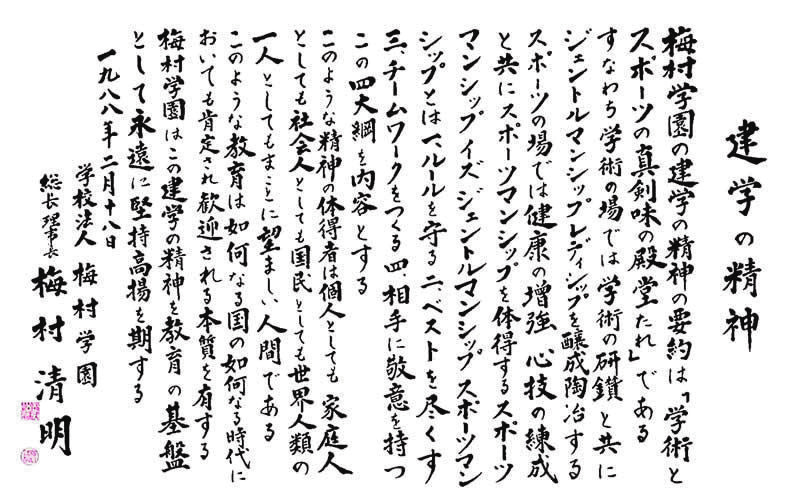 建学の精神
梅村学園の建学の精神の要約は「学術と
スポーツの真剣味の殿堂たれ」である
すなわち学術の場では学術の研鑽と共に
ジェントルマンシップレディシップを醸成陶冶する
スポーツの場では健康の増強 心技の練成
と共にスポーツマンシップを体得するスポーツ
マンシップイズジェントルマンシップ スポーツマン
シップとは一、ルールを守る 二、ベストを尽くす
三、チームワークをつくる 四、相手に敬意を持つ
この四大綱を内容とする
このような精神の体得者は個人としても 家庭人
としても社会人としても国民としても世界人類の
一人としてもまことに望ましい人間である
このような教育は如何なる国の如何なる時代に
おいても肯定され歓迎される本質を有する
梅村学園はこの建学の精神を教育の基盤
として永遠に堅持高揚を期する
一九八八年二月十八日
学校法人 梅村学園
総長理事長 梅村清明